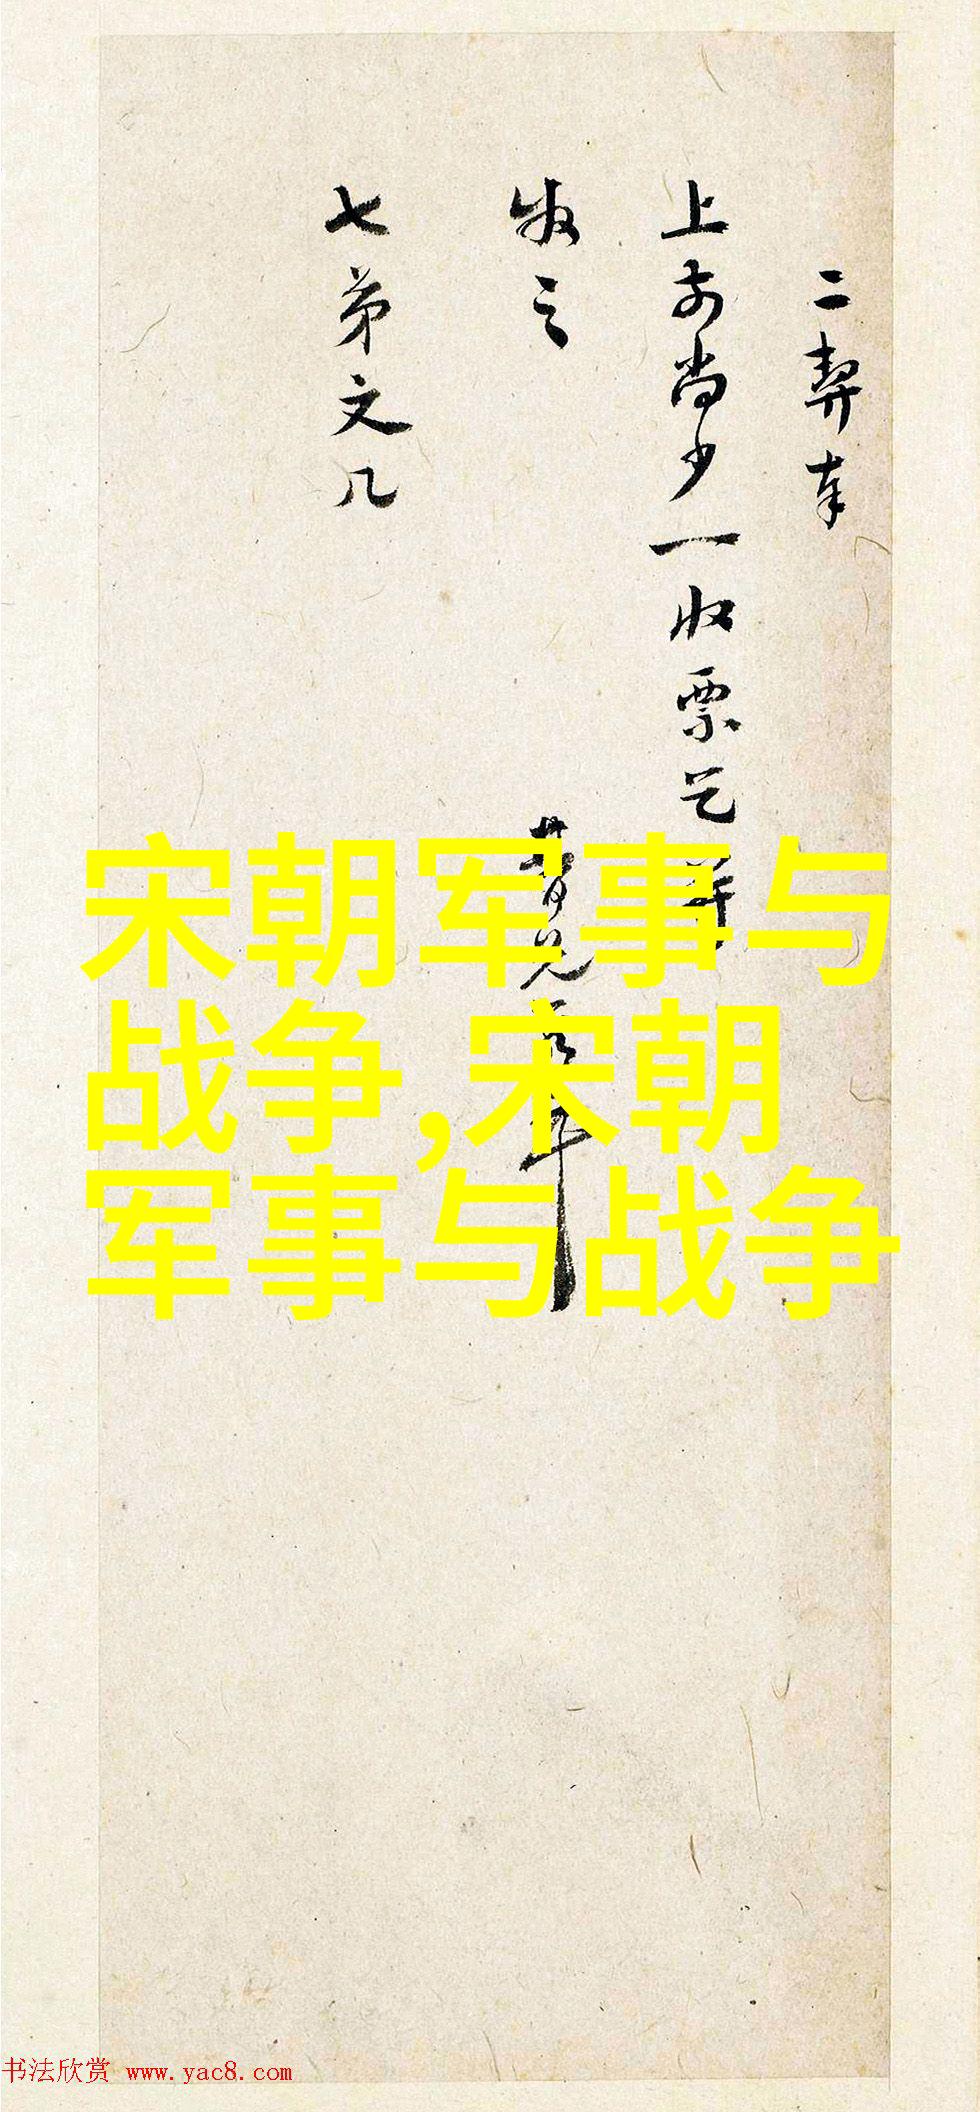 二契奉
上前尚少一收票乞并
收之
七弟文几
宋朝军事与
战争,宋朝
军事与战争
书法欣赏 www.yac8.com